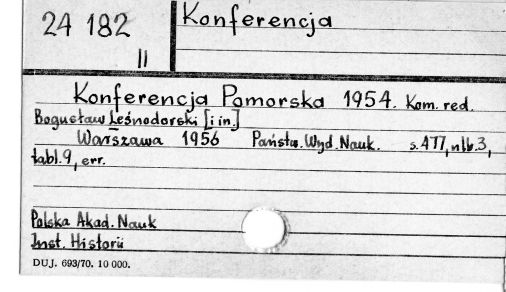 24 182
II
Konferencja
Konferencja Pomorska 1954. Kom. red.
Bogusław Leśnodorski [i in.]
Warszawa 1956 Państw. Wyd. Nauk. s. 477, nlb. 3,
tabl. 9, err.
Polska Akad. Nauk
Inst. Historii
DUJ. 693/70. 10 000.